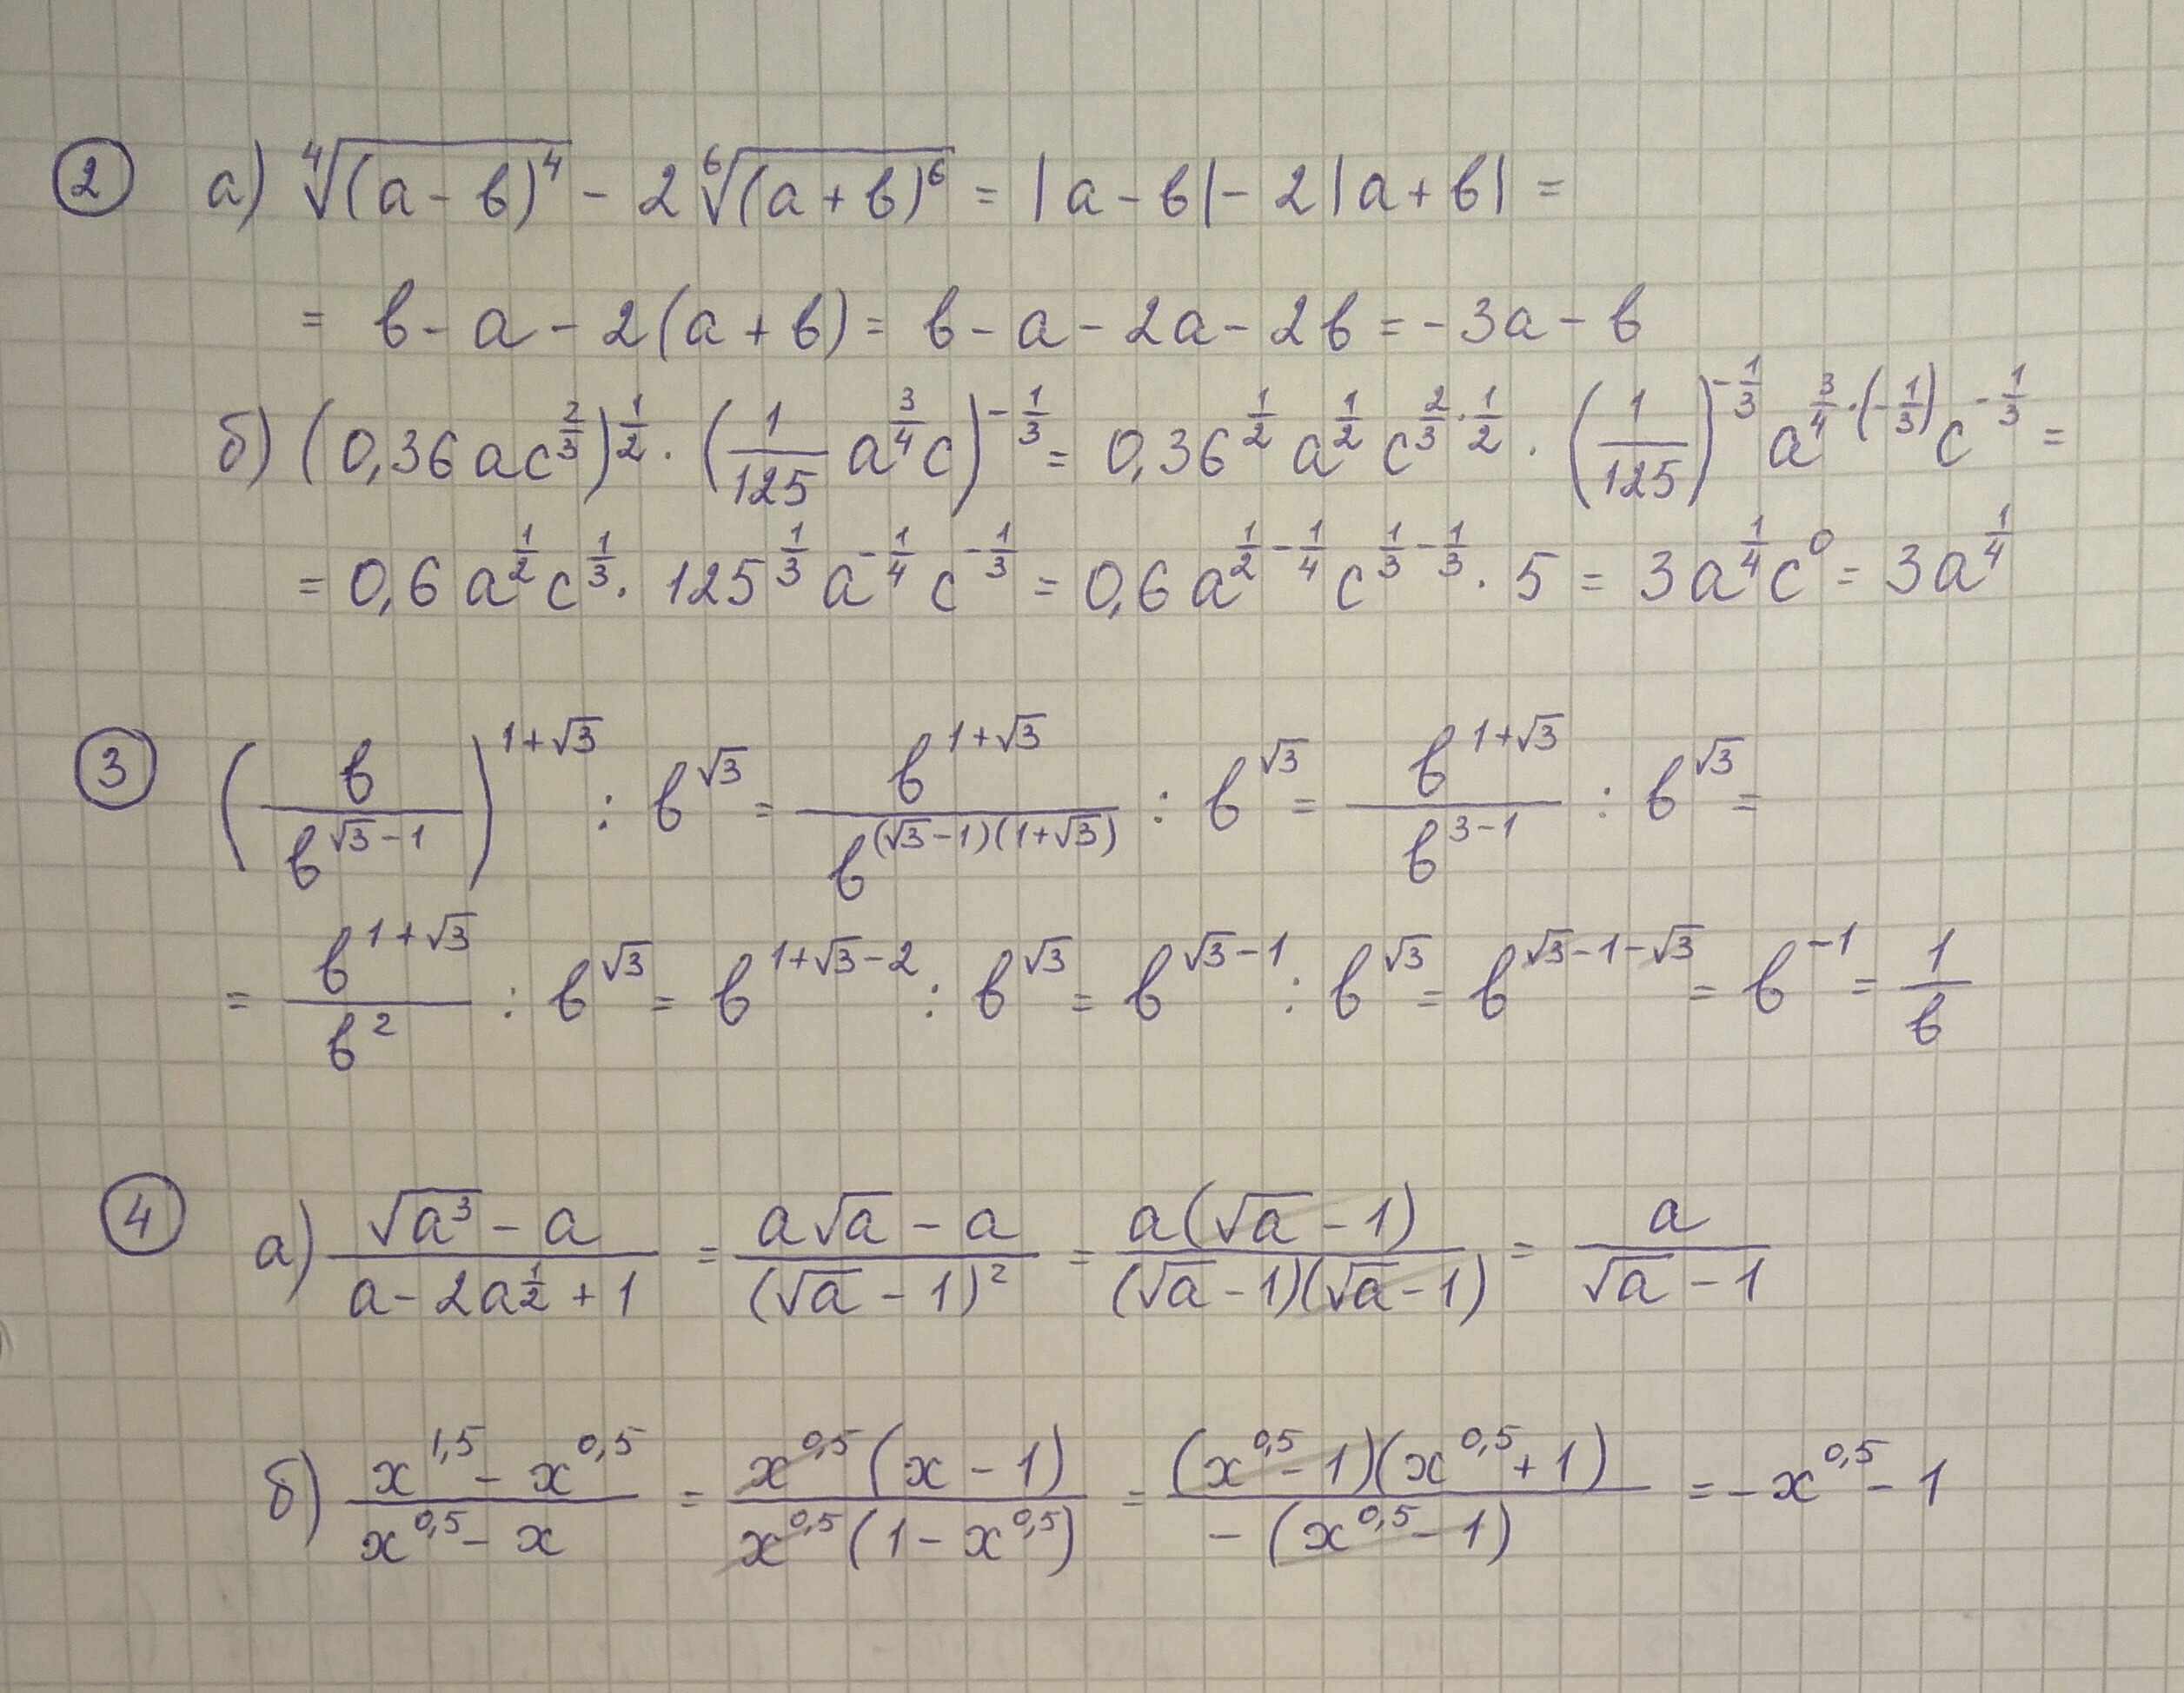 ② а) ⁴√((a-b)⁴) - 2 ⁶√((a+b)⁶) = |a-b| - 2|a+b| =
= b - a - 2(a+b) = b - a - 2a - 2b = -3a - b
б) (0,36ac^(2/3))^(1/2) · (1/125 a^(3/4) c)^(-1/3) = 0,36^(1/2) a^(1/2) c^(2/3·1/2) · (1/125)^(-1/3) a^(3/4·(-1/3)) c^(-1/3) =
= 0,6 a^(1/2) c^(1/3) · 125^(1/3) a^(-1/4) c^(-1/3) = 0,6 a^(1/2-1/4) c^(1/3-1/3) · 5 = 3a^(1/4) c^0 = 3a^(1/4)
③ (b/b^(√3-1))^(1+√3) : b^(√3) = b^(1+√3)/b^((√3-1)(1+√3)) : b^(√3) = b^(1+√3)/b^(3-1) : b^(√3) =
= b^(1+√3)/b² : b^(√3) = b^(1+√3-2) : b^(√3) = b^(√3-1) : b^(√3) = b^(√3-1-√3) = b^(-1) = 1/b
④ а) (√(a³) - a)/(a - 2a^(1/2) + 1) = (a√a - a)/((√a - 1)²) = a(√a - 1)/((√a - 1)(√a - 1)) = a/(√a - 1)
б) (x^(1,5) - x^(0,5))/(x^(0,5) - x) = x^(0,5)(x - 1)/(x^(0,5)(1 - x^(0,5))) = (x^(0,5) - 1)(x^(0,5) + 1)/(-(x^(0,5) - 1)) = -x^(0,5) - 1